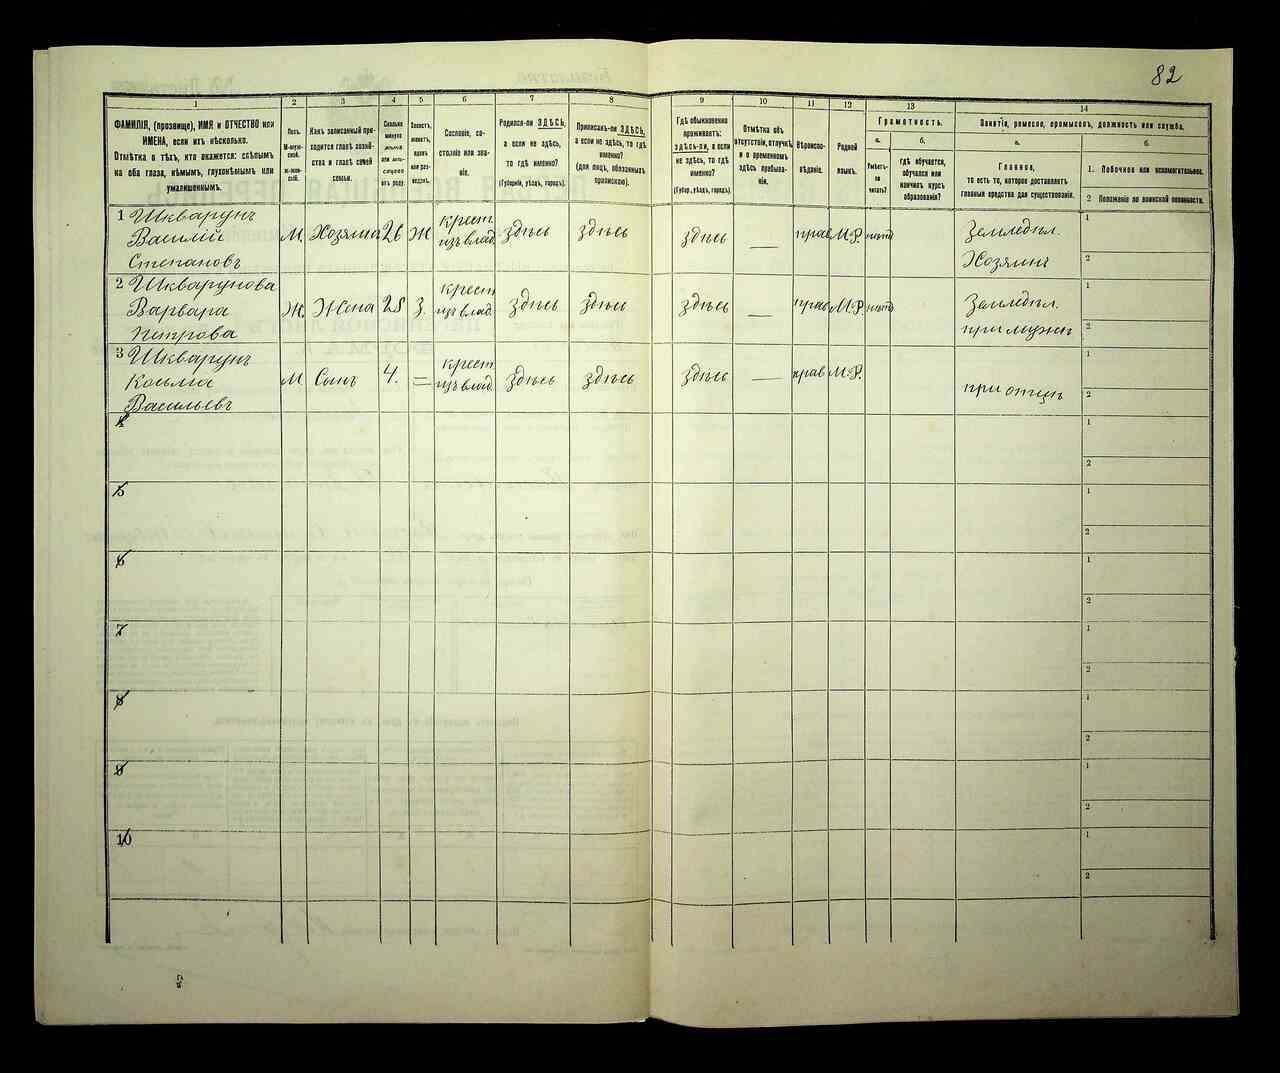 82
1
2
3
4
5
6
7
8
9
10
11
12
13
14
ФАМИЛІЯ, (прозвище), ИМЯ и ОТЧЕСТВО или
ИМЕНА, если ихъ нѣсколько.
Отмѣтка о тѣхъ, кто окажется: слѣпымъ
на оба глаза, нѣмымъ, глухонѣмымъ или
умалишеннымъ.
Полъ.
М-муж-
ской.
Ж-жен-
скій.
Какъ записанный при-
ходится главѣ хозяй-
ства и главѣ своей
семьи.
Сколько
минуло
лѣтъ
или мѣс-
яцевъ
отъ роду.
Холостъ,
женатъ,
вдовъ
или раз-
веденъ.
Сословіе, со-
стояніе или зва-
ніе.
Родился-ли ЗДѢСЬ,
а если не здѣсь,
то гдѣ именно?
(Губернія, уѣздъ, городъ).
Приписанъ-ли ЗДѢСЬ,
а если не здѣсь, то гдѣ
именно?
(для лицъ, обязанныхъ
припискою).
Гдѣ обыкновенно
проживаетъ:
ЗДѢСЬ-ли, а если
не здѣсь, то гдѣ
именно?
(Губер., уѣздъ, городъ).
Отмѣтка объ
отсутствіи, отлучкѣ
и о временномъ
здѣсь пребыва-
ніи.
Вѣроиспо-
вѣданіе.
Родной
языкъ.
Грамотность.
а.
б.
Умѣетъ-
ли
читать?
гдѣ обучается,
обучался или
кончилъ курсъ
образованія?
Занятіе, ремесло, промыселъ, должность или служба.
а.
б.
Главное,
то есть то, которое доставляетъ
главныя средства для существованія.
1. Побочное или вспомогательное.
2 Положеніе по воинской повинности.
1 Шкварунъ
Василій
Степановъ
М. Хозяинъ 26 Ж
крест.
изъ влад.
здѣсь здѣсь здѣсь — прав М.Р. нѣтъ
Земледѣл.
Хозяинъ
1
2
2 Шкварунова
Варвара
Петрова
Ж. Жена 25 З.
крест
изъ влад.
здѣсь здѣсь здѣсь — прав М.Р. нѣтъ
Земледѣл.
при мужѣ
1
2
3 Шкварунъ
Косьма
Васильевъ
М Сынъ 4. =
крест
изъ влад.
здѣсь здѣсь здѣсь — прав М.Р.
при отцѣ
1
2
4
1
2
5
1
2
6
1
2
7
1
2
8
1
2
9
1
2
10
1
2